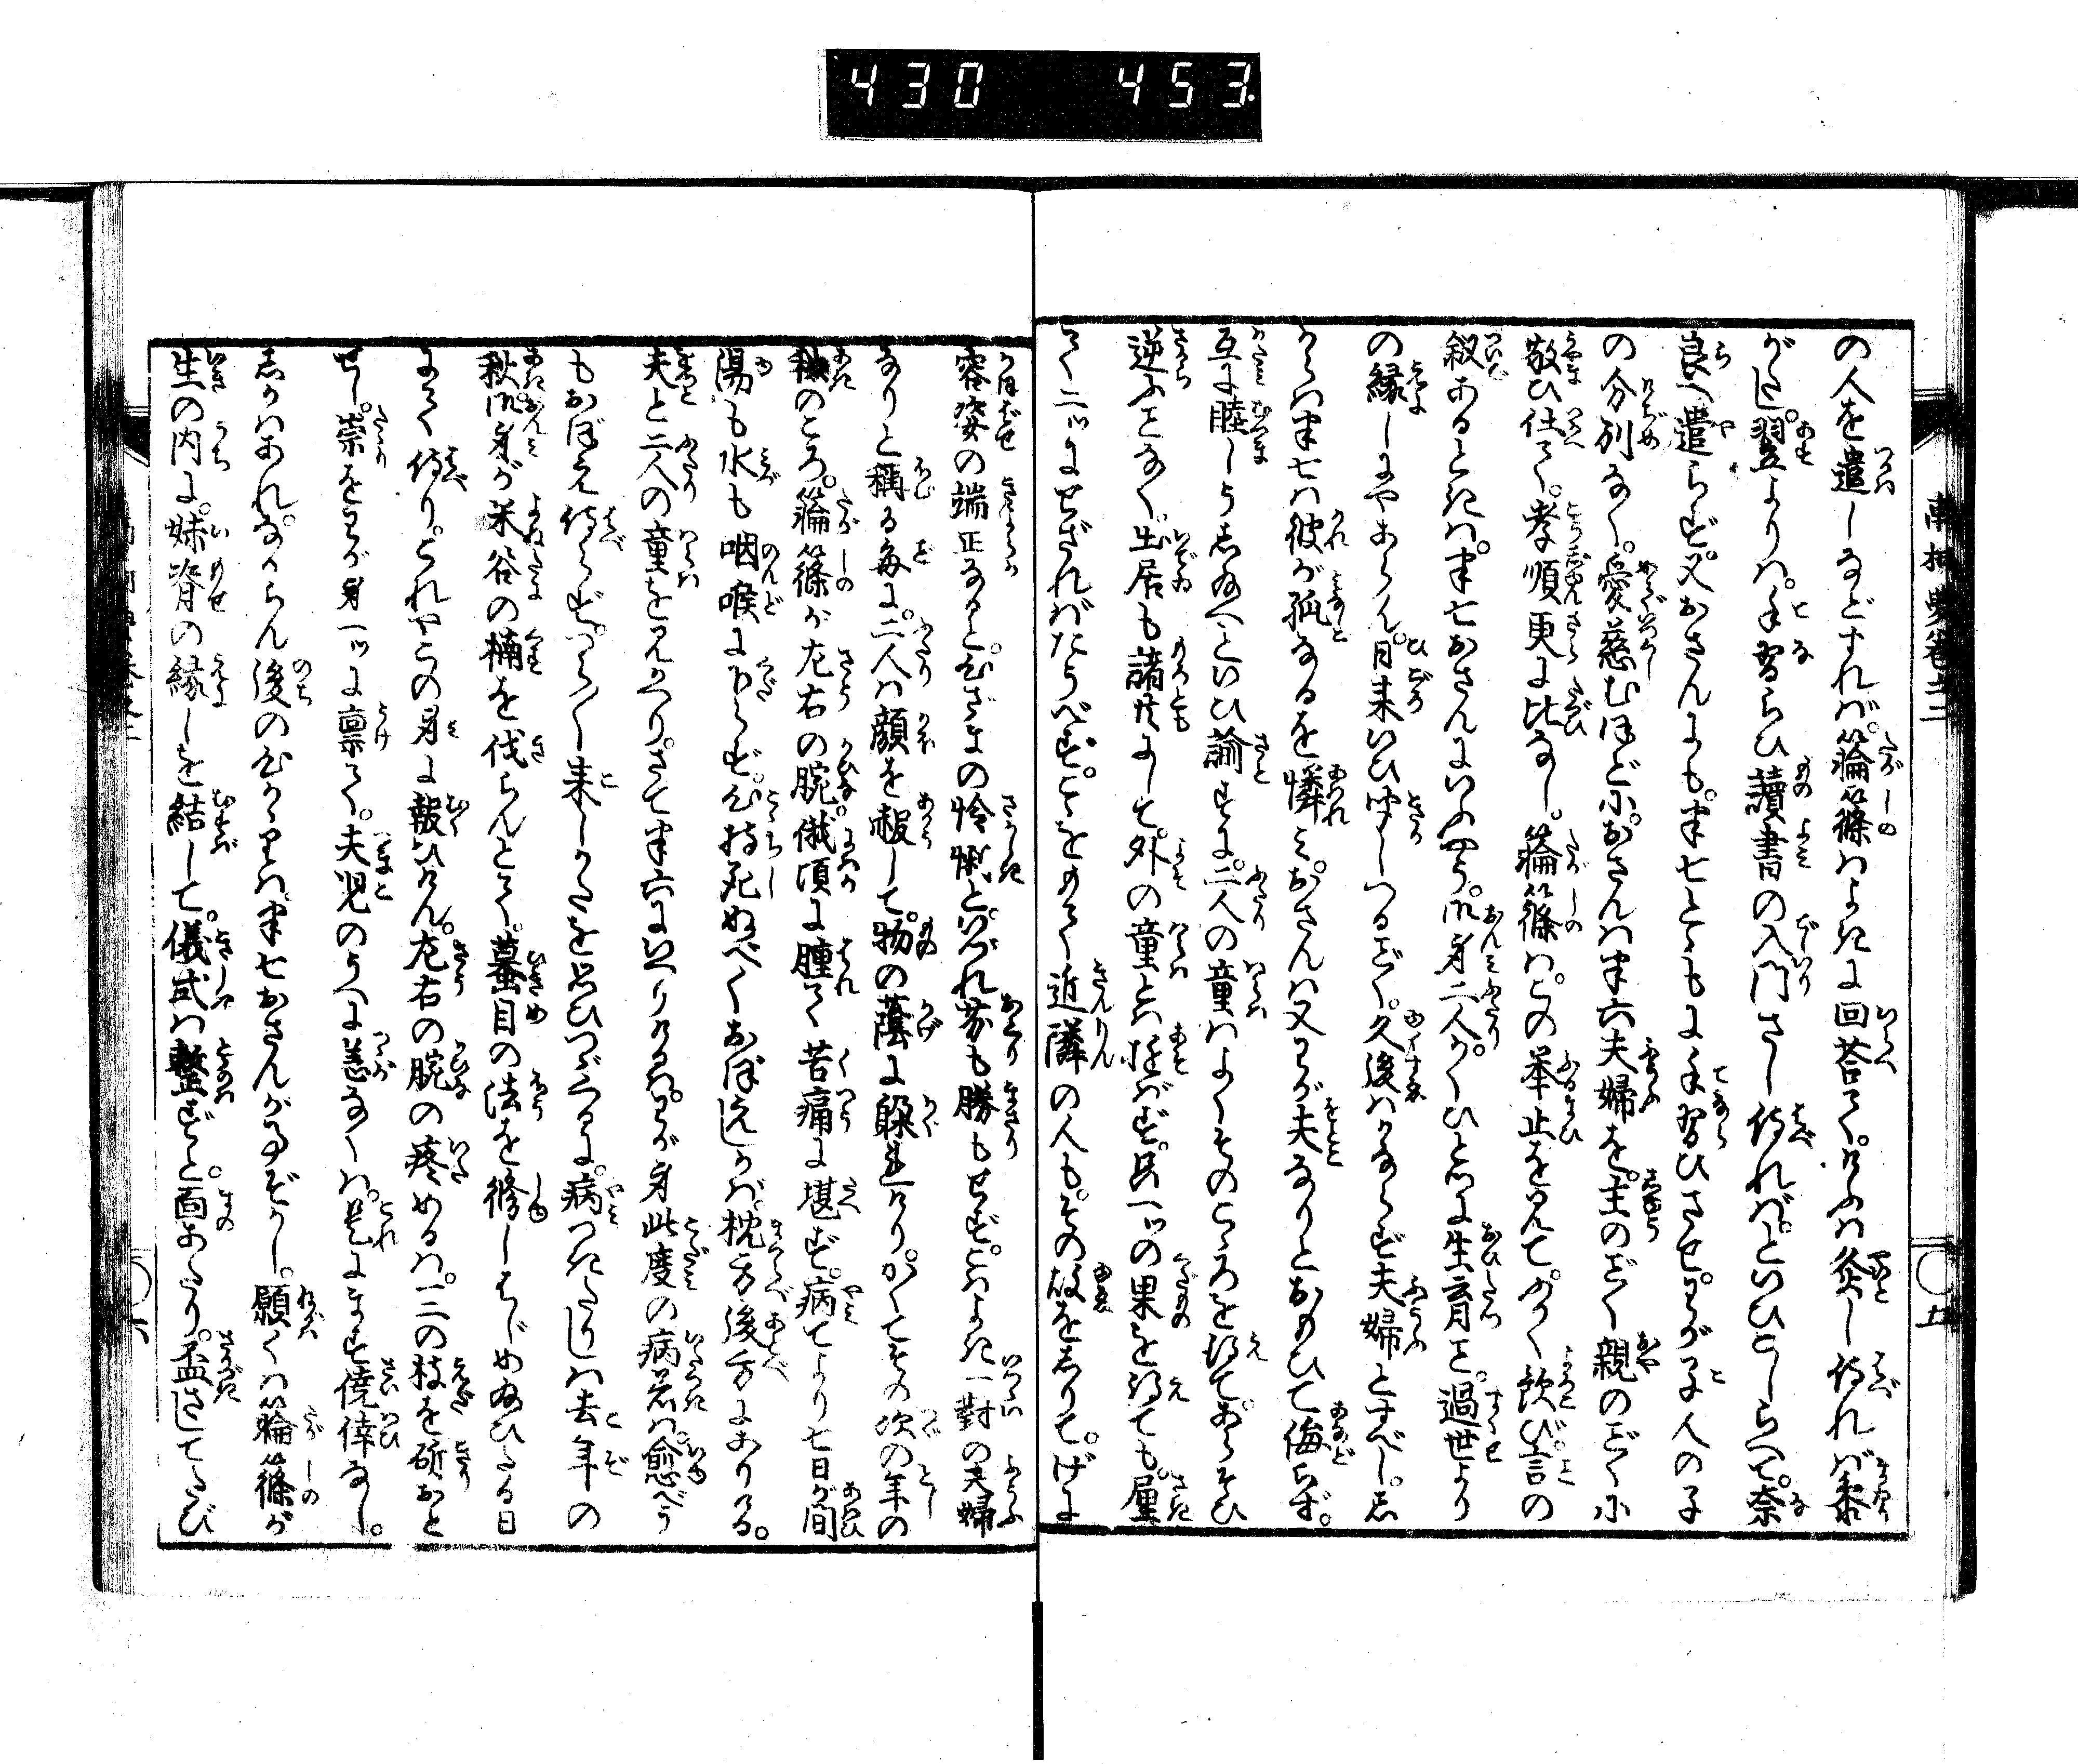 430 453.
の人を遣しなどすれば。籥篠はよきに回荅て。けふは灸し侍れば。黍
がし。翌よりは。手習らひ讀書の入門さし侍れば。といひこしらへて。奈
良へ遣らず。又おさんにも。半七とゝもに手習ひさせ。わが子人の子
の分別なく。愛慈むほどに。おさんは半六夫婦を。主のごく親のごくに
敬ひ仕て。孝順更に比なし。籥篠は。この挙止を見て。ふかく歓び。言の
叙あるときは。半七おさんにいふやう。御身二人かくひとつに生育こと。過世より
の縁しにやあらん。日来いひ聞しつるごく。久後はかならず夫婦とすべし。志
からば半七は彼が孤なるを憐み。おさんは又わが夫なりとおもひて侮らず。
互に睦しう志給へといひ諭すに。二人の童はよくそのこゝろを得て。あらそひ
逆ふことなく。出居も諸共にして。外の童とは遊ばず。只一ッの果を得ても。屋
て二ッにせざればたうべず。こゝをもて近隣の人も。その故をしりて。げに
容姿の端正なると。心ざまの怜悧と。いづれ劣も勝もせず。こはよき一對の夫婦
なりと稱る毎に。二人は顔を赧して。物の蔭に躱れけり。かくてその次の年の
秋のころ。籥篠が左右の腕。俄頃に腫て苦痛に堪ず。病てより七日が間
湯も水も咽喉に下らず。心持死ぬべくおぼえしかば。枕方後方にありける。
夫と二人の童を見かへり。さて半六にいへりけるは。わが身此度の病著は。愈べう
もおぼえ侍らず。つら〳〵来しかたを思ひつゞくるに。病つきたりしは去年の
秋。御身が米谷の楠を伐らんとて。蟇目の法を修しはじめ給ひたる日
にて侍り。これやこの身に報ひけん。左右の腕の疼めるは。二の枝を斫おと
せし。祟をわが身一ッに禀て。夫児のうへに恙なくは。是にます僥倖なし。
志かはあれ。なからん後の心がゝりは。半七おさんが事ぞかし。願くは籥篠が
生の内に。妹脊の縁しを結して。儀式は整ずと。面あたり。盃さしてたび